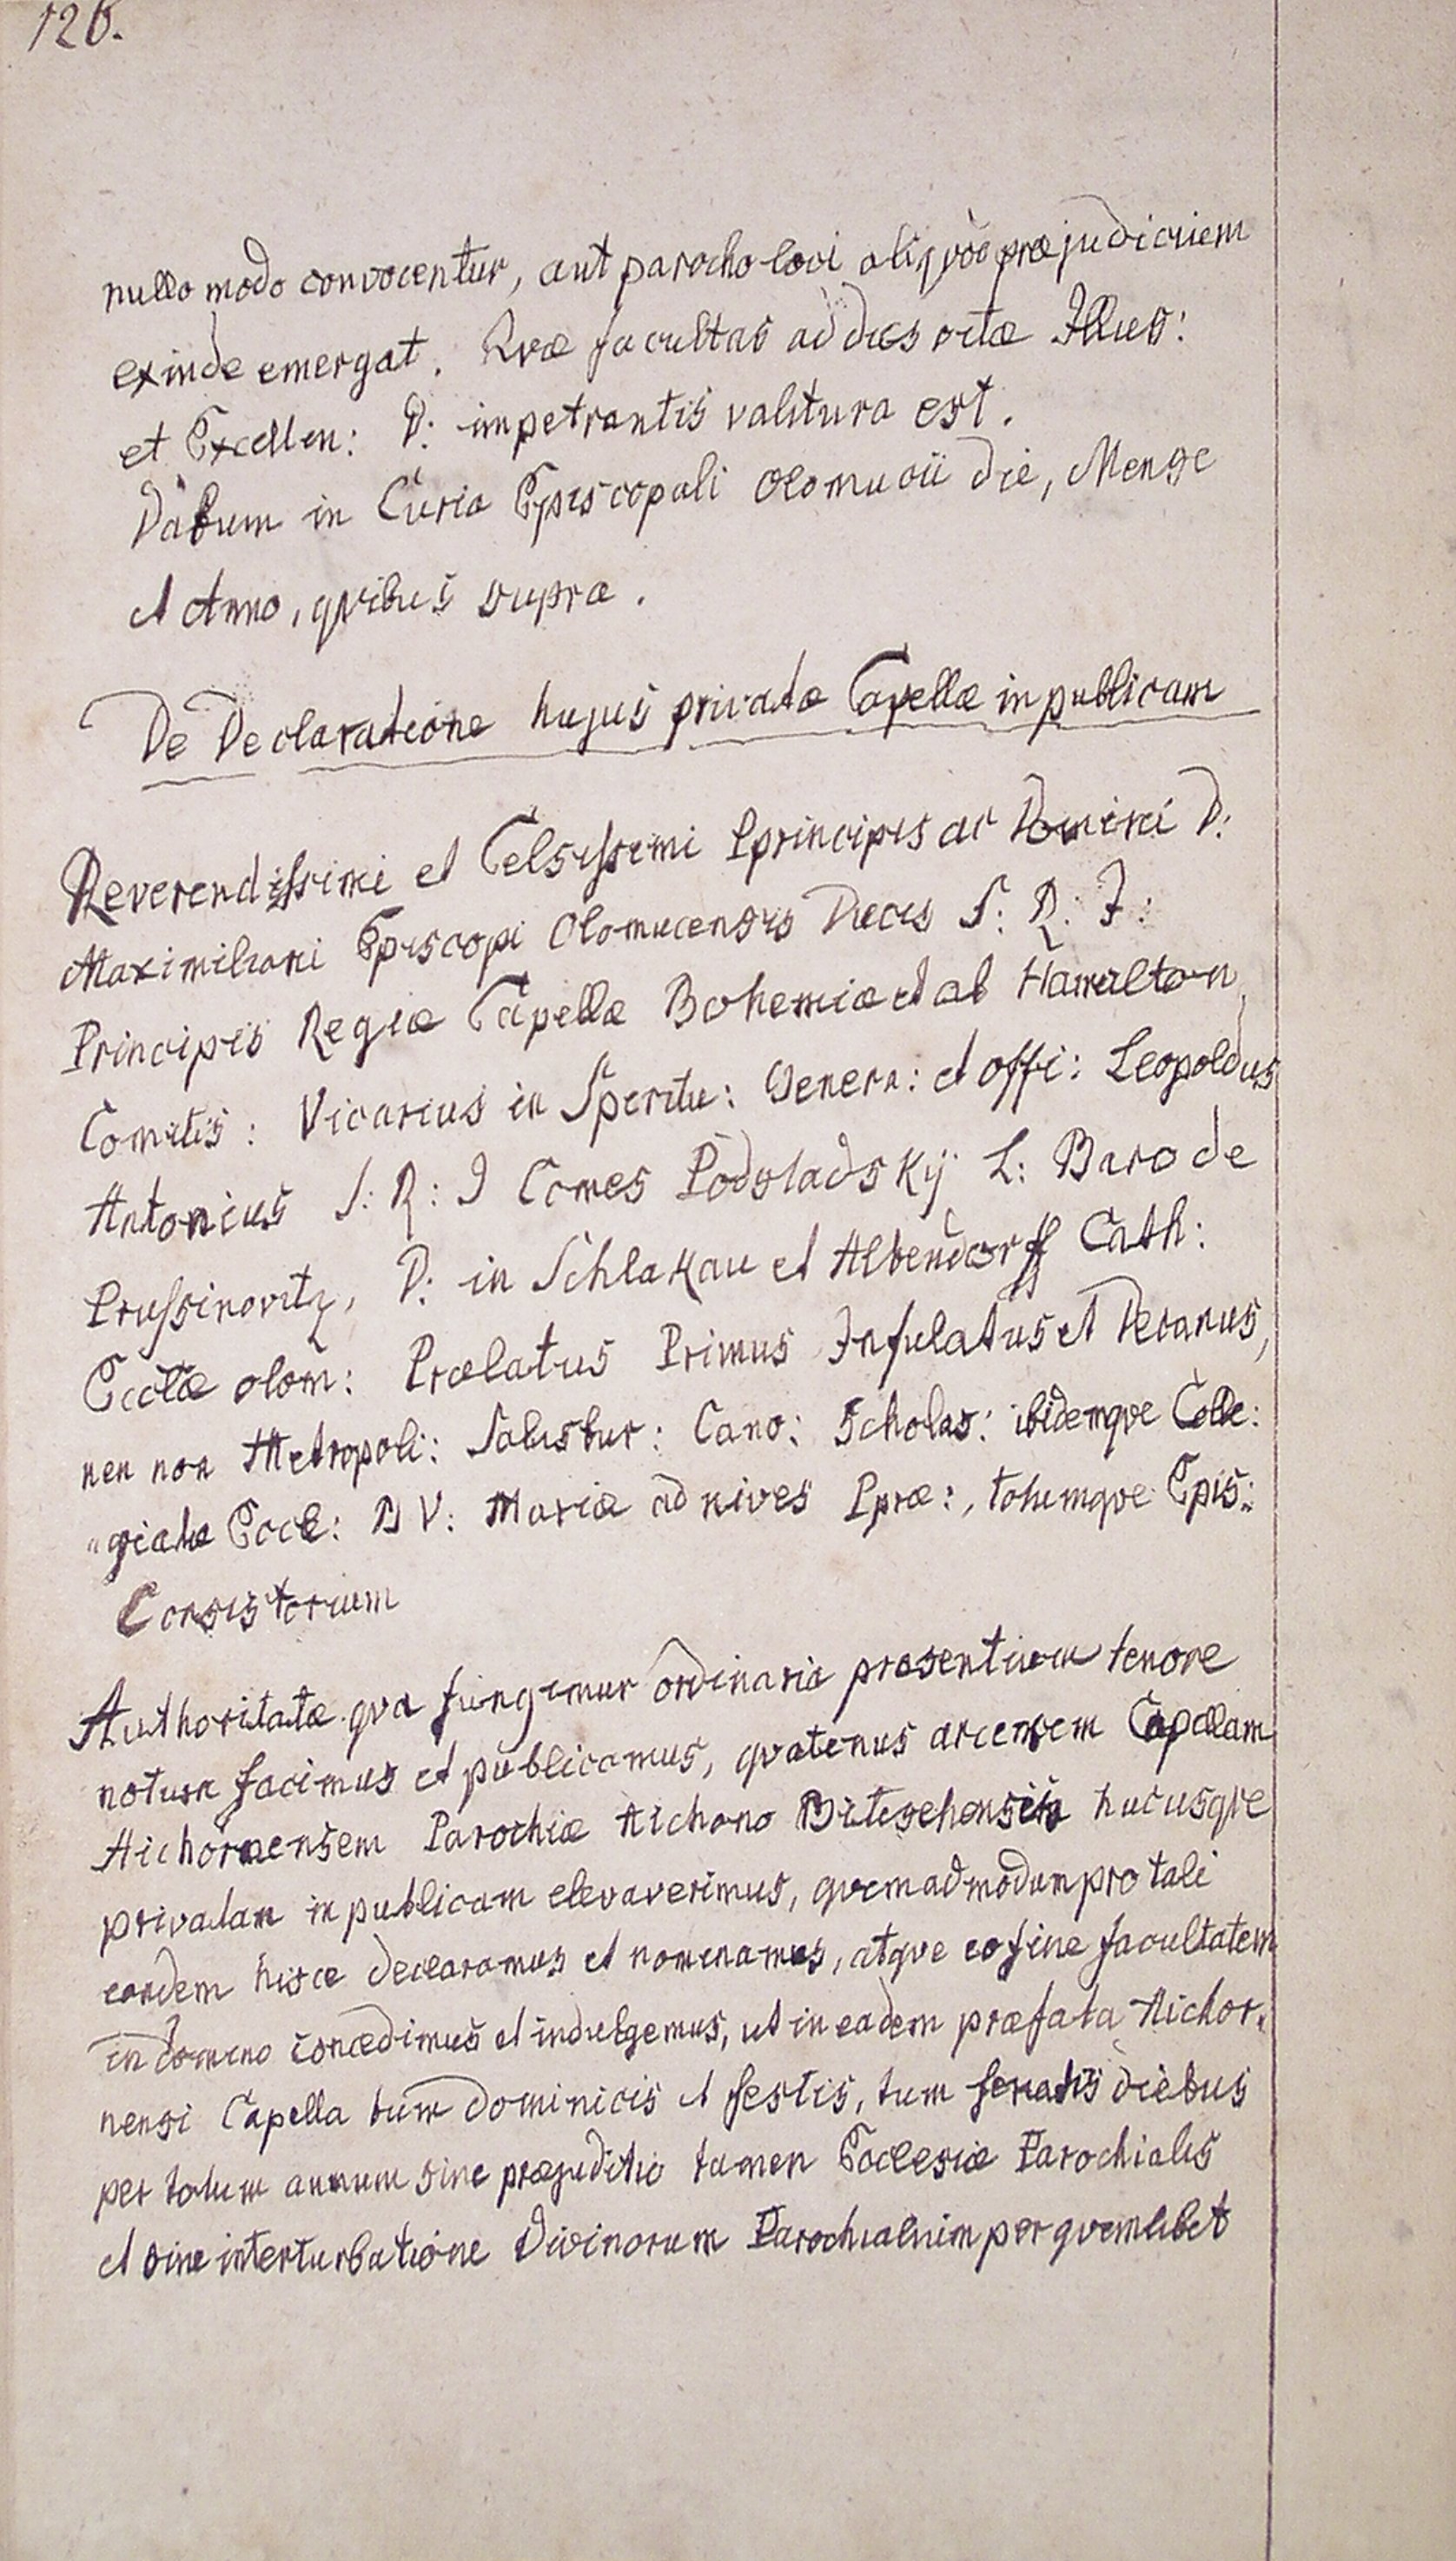 126.
nullo modo convocentur, aut parocho loci aliqvod præjudicium
exinde emergat. Qvæ facultas ad dies vitæ Illus:
et Excellen: D: impetrantis valitura est.
Datum in Curia Episcopali Olomucii die, Mense
et Anno, qvibus supra.
De Declaratione hujus privatæ Capellæ in publicam
Reverendissimi et Celsissimi Pprincipis ac Domini D:
Maximiliani Episcopi Olomucensis Ducis S: R: I:
Principis Regiæ Capellæ Bohemiæ et ab Hamilton
Comitis: Vicarius in Spiritu: Genera: et offi: Leopoldus
Antonius S: R: I Comes Podstadskÿ L: Baro de
Prussinovitz, D: in Schlakau et Albendorff Cath:
Ecclæ olom: Prælatus Primus Infulatus et Decanus,
nen non Metropoli: Salisbur: Cano: Scholas: ibidemqve Colle:
"giatæ Eccle: B V: Mariæ ad nives Ppræ:, totumqve Epis:
Consistorium
Authoritatæ qva fungimur ordinaria præsentium tenore
notum facimus et publicamus, qvatenus arcensem Capellam
Aichornensem Parochiæ Aichorno Bitischensis hucusqve
privatam in publicam elevaverimus, qvemadmodum pro tali
eandem hisce declaramus et nominamus, atqve eo fine facultatem
in domino concedimus et indulgemus, ut in eadem præfata Aichor.
nensi Capella tum dominicis et festis, tum feriatis diebus
per totum annum sine præjuditio tamen Ecclesiæ Parochialis
et sine interturbatione Divinorum Parochialium per qvemlibet